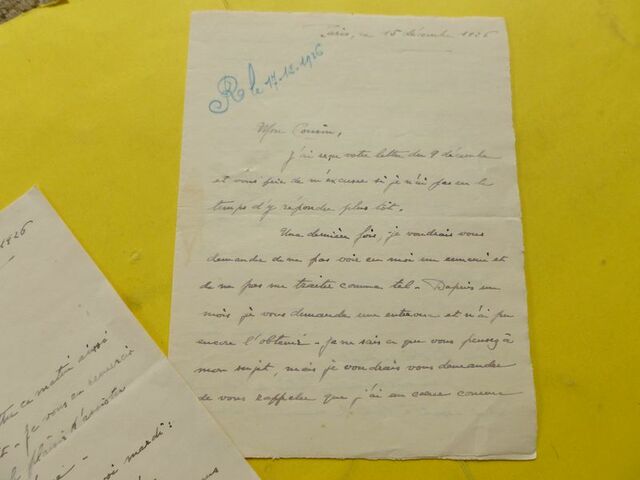 Paris, ce 15 décembre 1926
R le 17.12.1926
Mon Cousin,
J'ai reçu votre lettre du 9 décembre
et vous prie de m'excuser si je n'ai pas eu le
temps d'y répondre plus tôt.
Une dernière fois, je voudrais vous
demander de ne pas voir en moi un ennemi et
de ne pas me traiter comme tel - Depuis un
mois je vous demande une entrevue et n'ai pu
encore l'obtenir - Je ne sais ce que vous pensez à
mon sujet, mais je voudrais vous demander
de vous rappeler que j'ai au cœur comme
1926
ce matin
- Je vous en remercie
le plaisir d'assister
mardi :